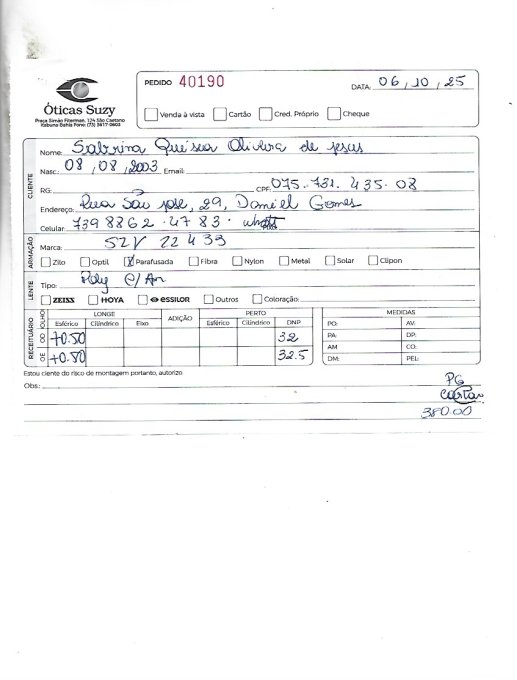 Óticas Suzy
Praça Simão Fiterman, 124 São Caetano
Itabuna Bahia Fone: (73) 3617-0603
PEDIDO 40190
DATA: 06, 10, 25
Venda à vista Cartão Cred. Próprio Cheque
CLIENTE
Nome: Sabrina Oliveira de Jesus
Nasc. 08, 08, 2003 Email:
RG: CPF: 075.731.435-08
Endereço: Rua São José, 29, Daniel Gomes
Celular: 739 8862.4783.
ARMAÇÃO
Marca: SZV 22433
Zilo Optil Parafusada Fibra Nylon Metal Solar Clipon
LENTE
Tipo: Poly C/ AR
ZEISS HOYA essilor Outros Coloração:
RECEITUÁRIO
OLHO LONGE ADIÇÃO PERTO MEDIDAS
Esférico Cilíndrico Eixo Esférico Cilíndrico DNP
OD +0.50 32
OE +0.50 32.5
PO: AV:
PA: DP:
AM CO:
DM: PEL:
Estou ciente do risco de montagem portanto, autorizo
Obs:
PG
Cartão
380.00